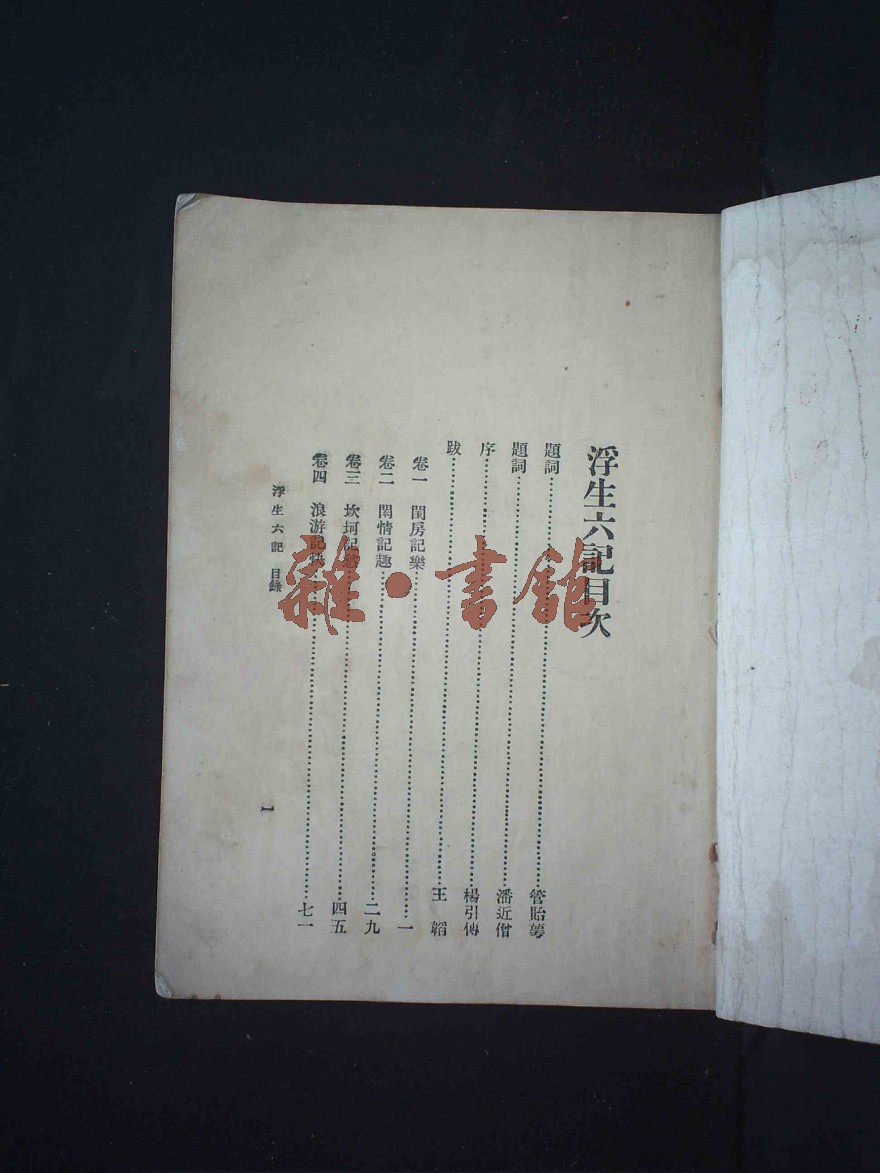 浮生六記目次
題詞……管貽萼
題詞……潘近僧
序……楊引傳
跋……王韜
卷一 閨房記樂……一
卷二 閑情記趣……二九
卷三 坎坷記愁……四五
卷四 浪游記快……七一
浮生六記 目錄
1
雜·書館